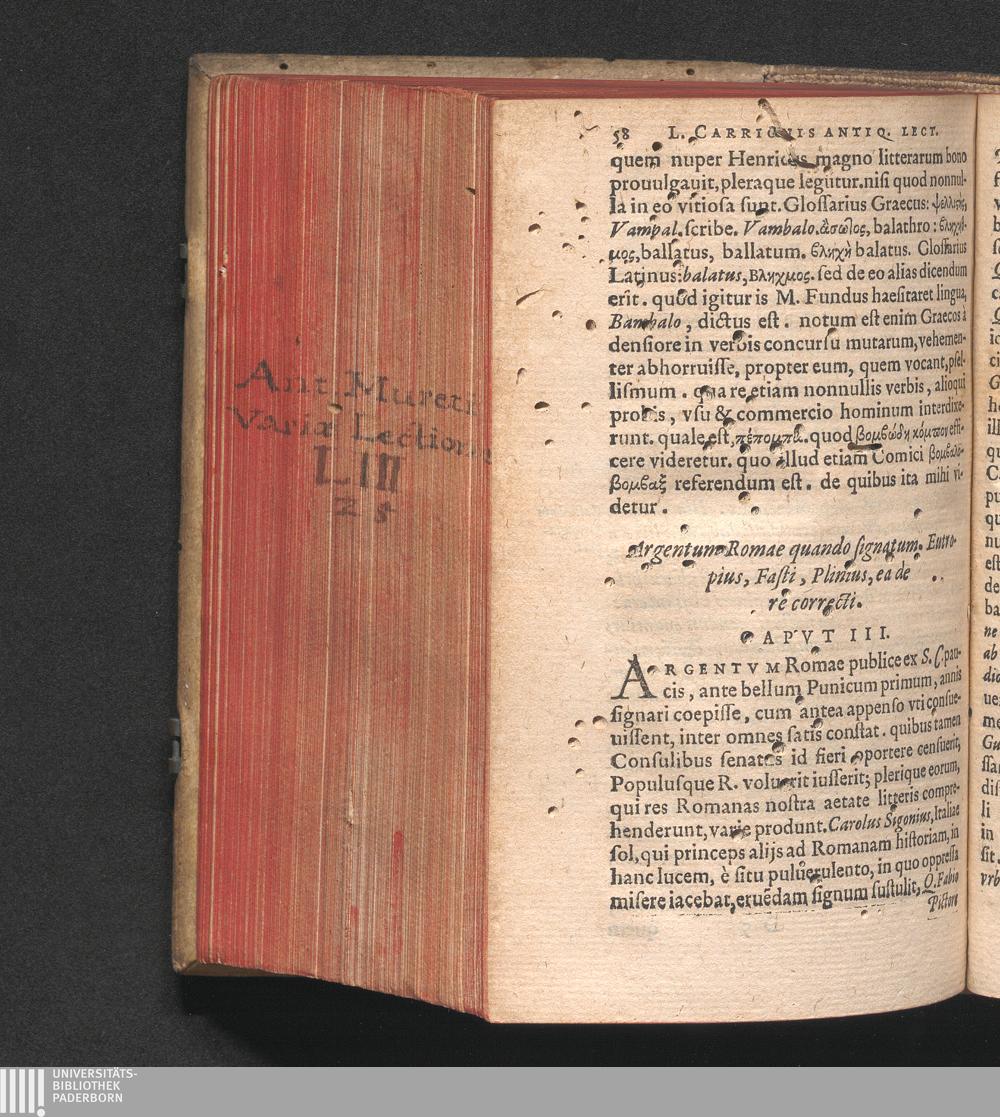 Ant. Mureti
Variæ Lection
L III
25
58 L. CARRIONIS ANTIQ. LECT.
quem nuper Henricus magno litterarum bono
prouulgauit, pleraque legūtur. nisi quod nonnul-
la in eo vitiosa sunt. Glossarius Graecus: ψελλιςὴς,
Vambal. scribe. Vambalo. ἄσωτος, balathro: βληχηθ-
μος, ballatus, ballatum. βληχὴ balatus. Glossarius
Latinus: balatus, Βληχμος. sed de eo alias dicendum
erit. quòd igitur is M. Fundus haesitaret lingua,
Bambalo, dictus est. notum est enim Graecos à
densiore in verbis concursu mutarum, vehemen-
ter abhorruisse, propter eum, quem vocant, psel-
lismum. qua re etiam nonnullis verbis, alioqui
probis, vsu & commercio hominum interdixe-
runt. quale est, πέπομπα. quod βομβώδη κόμπον effi-
cere videretur. quo illud etiam Comici βομβαλο-
βομβαξ referendum est. de quibus ita mihi vi-
detur.
Argentum Romae quando signatum. Eutro-
pius, Fasti, Plinius, ea de
re correcti.
CAPVT III.
ARGENTVM Romae publice ex S. C. pau-
cis, ante bellum Punicum primum, annis
signari coepisse, cum antea appenso vti consue-
uissent, inter omnes satis constat. quibus tamen
Consulibus senatus id fieri oportere censuerit,
Populusque R. voluerit iusserit; plerique eorum,
qui res Romanas nostra aetate litteris compre-
henderunt, varie produnt. Carolus Sigonius, Italiae
sol, qui princeps alijs ad Romanam historiam, in
hanc lucem, è situ puluerulento, in quo oppressa
misere iacebat, eruēdam signum sustulit, Q. Fabio
Pictore
UNIVERSITÄTS-
BIBLIOTHEK
PADERBORN